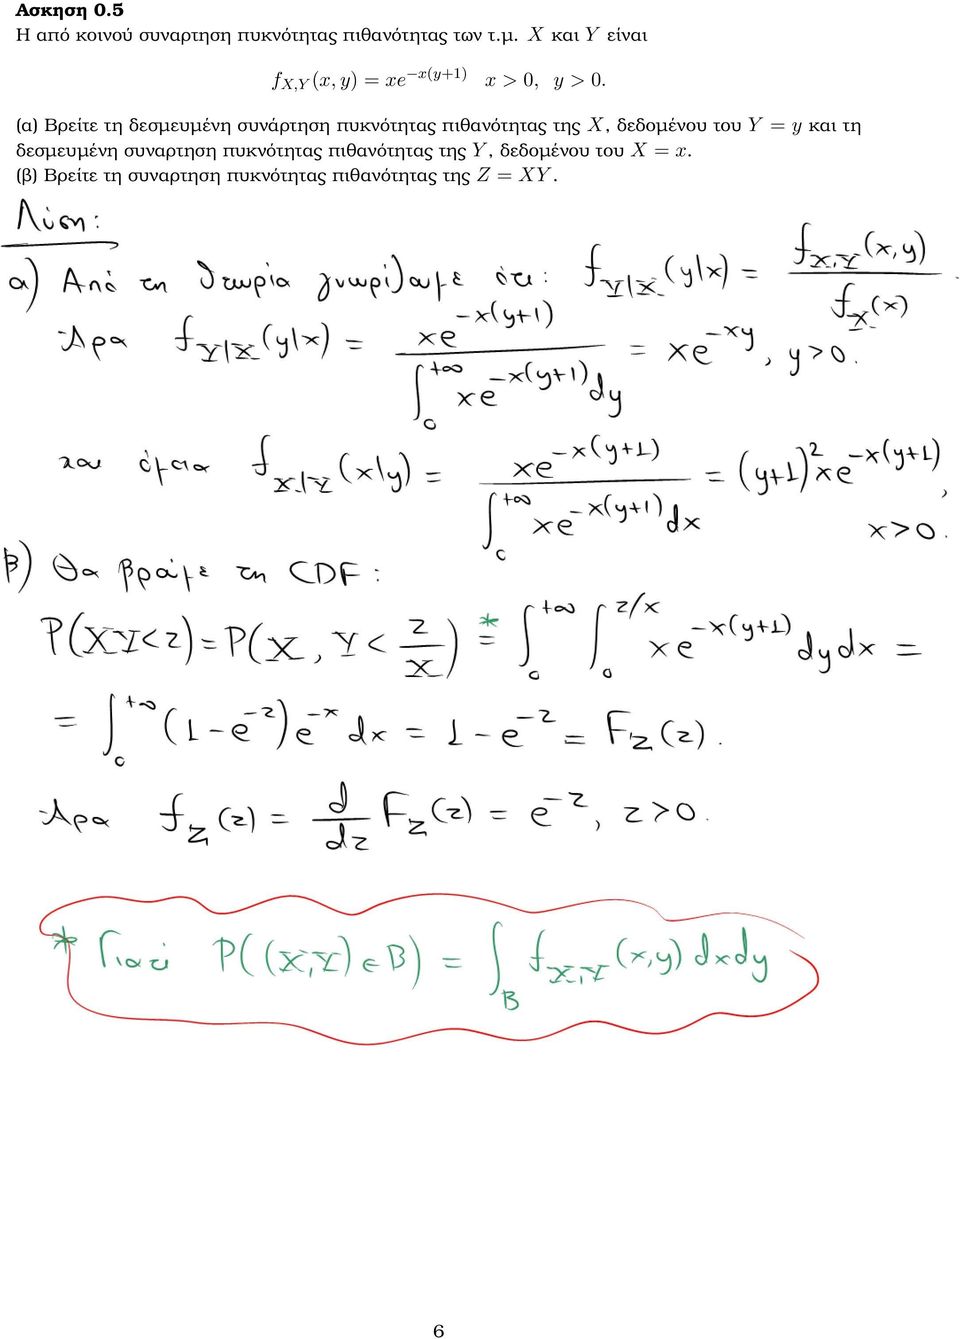 Ασκηση 0.5
Η από κοινού συναρτηση πυκνότητας πιθανότητας των τ.μ. X και Y είναι
f_{X,Y}(x, y) = xe^{−x(y+1)} x > 0, y > 0.
(α) Βρείτε τη δεσμευμένη συνάρτηση πυκνότητας πιθανότητας της X, δεδομένου του Y = y και τη
δεσμευμένη συναρτηση πυκνότητας πιθανότητας της Y, δεδομένου του X = x.
(β) Βρείτε τη συναρτηση πυκνότητας πιθανότητας της Z = XY.
Λύση:
α) Από τη θεωρία γνωρίζουμε ότι: f_{Y|X}(y|x) = f_{X,Y}(x,y) / f_X(x).
Άρα f_{Y|X}(y|x) = xe^{-x(y+1)} / ∫_0^{+∞} xe^{-x(y+1)} dy = xe^{-xy}, y>0.
και όμοια f_{X|Y}(x|y) = xe^{-x(y+1)} / ∫_0^{+∞} xe^{-x(y+1)} dx = (y+1)^2 xe^{-x(y+1)}, x>0.
β) Θα βρούμε τη CDF:
P(XY<z) = P(X, Y < z/X) =* ∫_0^{+∞} ∫_0^{z/x} xe^{-x(y+1)} dydx =
= ∫_0^{+∞} (1-e^{-z})e^{-x} dx = 1-e^{-z} = F_Z(z).
Άρα f_Z(z) = d/dz F_Z(z) = e^{-z}, z>0.
* Γιατί P((X,Y)∈B) = ∫_B f_{X,Y}(x,y) dxdy
6